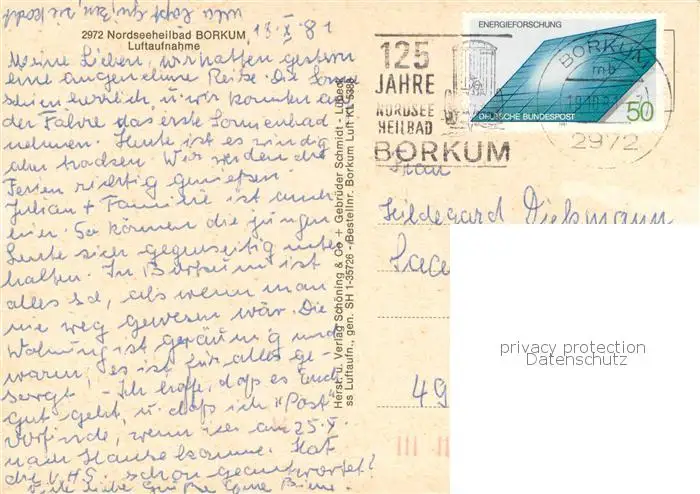 18.X.81
2972 Nordseeheilbad BORKUM
Luftaufnahme
Meine Lieben, wir hatten gestern
eine angenehme Reise. Die Sonne
schien herrlich, u. wir konnten auf
der Fähre das erste Sonnenbad
nehmen. Heute ist es windig
aber trocken. Wir werden die
Ferien richtig genießen.
Julian + Familie ist auch
hier. So können die jungen
Leute sich gegenseitig unter-
halten. In Borkum ist
alles so, als wenn man
nie weg gewesen wär. Die
Wohnung ist geräumig und
warm, es ist für alles ge-
sorgt - Ich hoffe, daß es Euch
gut geht, u. daß ich "Post"
vorfinde, wenn ich am 25.X.
nach Hause komme. Hat
die V.H.S. schon geantwortet?
Viele liebe Grüße Eure
Herst. u. Verlag Schöning & Co + Gebrüder Schmidt - Lübeck
ss Luftaufn., gen. SH 1-35726 - Bestellnr. Borkum Luft KL 5388
125
JAHRE
NORDSEE
HEILBAD
BORKUM
ENERGIEFORSCHUNG
DEUTSCHE BUNDESPOST
50
BORKUM
mb
2972
Frau
Hildegard Dießmann
49
privacy protection
Datenschutz